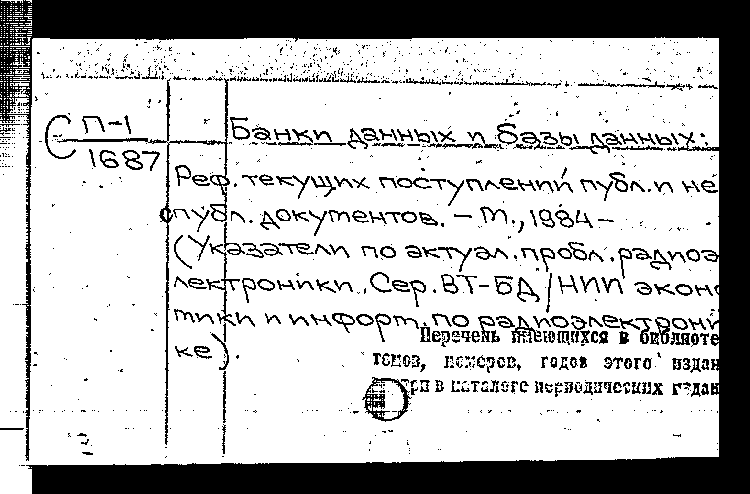 С П-1
1687
Банки данных и базы данных:
Реф. текущих поступлений публ. и не
публ. документов. – М., 1984 –
(Указатели по актуал. пробл. радиоэ
лектроники. Сер. ВТ-БД / НИИ эконо
мики и информ. по радиоэлектрони
ке).
Перечень имеющихся в библиоте
томов, номеров, годов этого издан
в каталоге периодических